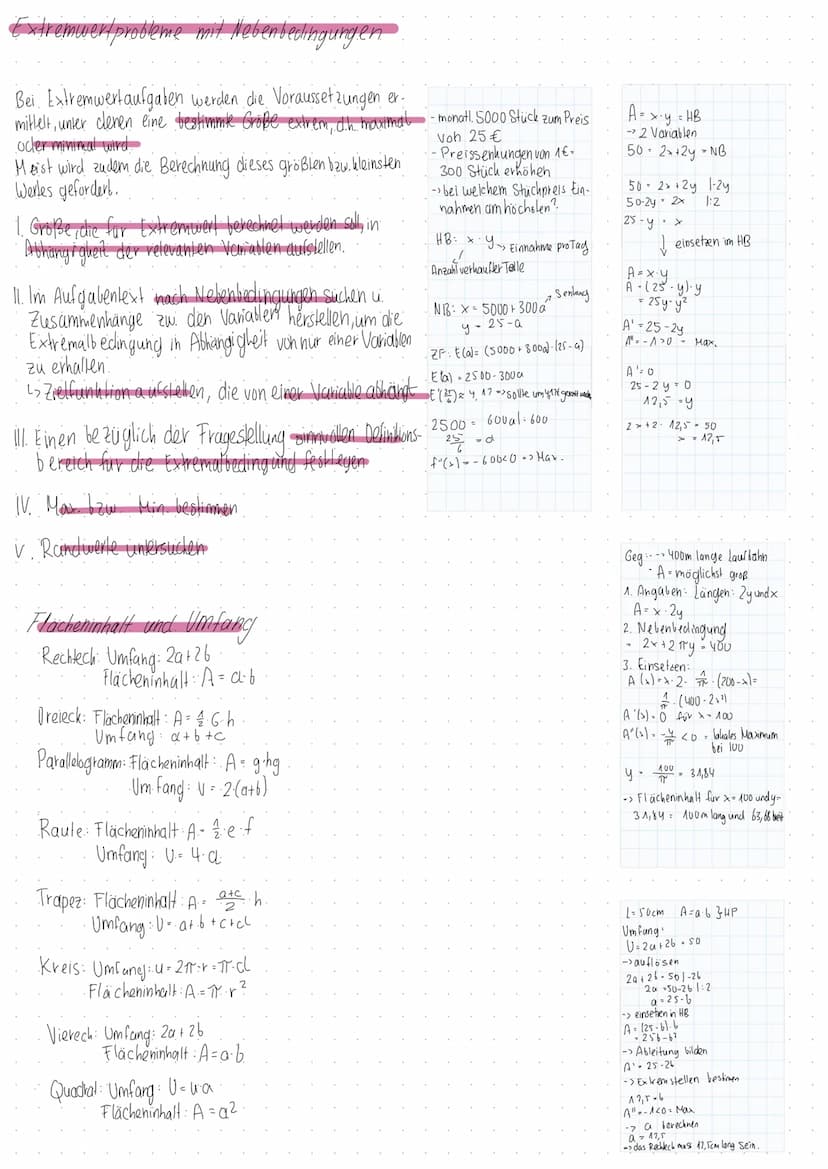 Extremwertprobleme mit Nebenbedingungen
Bei Extremwertaufgaben werden die Voraussetzungen er-
mittelt, unter denen eine bestimmte Größe extrem, d.h. maximal
oder minimal wird
Meist wird zudem die Berechnung dieses größten bzw. kleinsten
Wertes gefordert.
I. Größe, die für Extremwert berechnet werden soll, in
Abhängigkeit der relevanten Variablen aufstellen.
II. Im Aufgabentext nach Nebenbedingungen suchen u.
Zusammenhänge zw. den Variablen herstellen, um die
Extremalbedingung in Abhängigkeit von nur einer Variablen
zu erhalten
↳ Zielfunktion aufstellen, die von einer Variable abhängt
III. Einen bezüglich der Fragestellung sinnvollen Definitions-
bereich für die Extremalbedingung festlegen
IV. Max. bzw. Min. bestimmen
V. Randwerte untersuchen
Flächeninhalt und Umfang
Rechteck: Umfang: 2a+2b
Flächeninhalt: A = a·b
Dreieck: Flächeninhalt: A = 1/2 G·h
Umfang: a+b+c
Parallelogramm: Flächeninhalt: A = g·hg
Umfang: U = 2·(a+b)
Raute: Flächeninhalt: A = 1/2·e·f
Umfang: U = 4·a
Trapez: Flächeninhalt: A = (a+c)/2 · h
Umfang: U = a+b+c+d
Kreis: Umfang: u = 2π·r = π·d
Flächeninhalt: A = π·r²
Viereck: Umfang: 2a+2b
Flächeninhalt: A = a·b
Quadrat: Umfang: U = 4·a
Flächeninhalt: A = a²
- monatl. 5000 Stück zum Preis
von 25€
- Preissenkungen von 1€ =
300 Stück erhöhen
-> bei welchem Stückpreis Ein-
nahmen am höchsten?
HB: x · y -> Einnahme pro Tag
Anzahl verkaufter Teile
NB: x = 5000+300a -> Senkung
y = 25-a
ZF: E(a) = (5000+300a)·(25-a)
E'(a) = 2500-
=> sollte um 4,17€ gesenkt
2500 = 600a | :600
25/6 = a
f''(x) = -600<0 => Max.
A = x·y = HB
-> 2 Variablen
50 = 2x+2y = NB
50 = 2x+2y |-2y
50-2y = 2x |:2
25-y = x
↓ einsetzen in HB
A = x·y
A = (25-y)·y
= 25y-y²
A' = 25-2y
= Max.
A' = 0
25-2y = 0
12,5 = y
2x+2·12,5 = 50
x = 12,5
Geg.: -> 400m lange Laufbahn
- A = möglichst groß
1. Angaben: Längen: 2y und x
A = x·2y
2. Nebenbedingung
= 2x+2πy = 400
3. Einsetzen:
A(x) = x·2·1/π·(200-x) =
1/π·(400-2x²)
A'(x) = 0 für x = 100
A''(x) = -4/π <0 = lokales Maximum
bei 100
y = 100/π = 31,84
-> Flächeninhalt für x = 100 und y =
31,84 = 100m lang und 63,68 breit
L = 50cm A = a·b }HP
Umfang:
U = 2a+2b = 50
-> auflösen
2a+2b = 50 |-2b
2a = 50-2b |:2
a = 25-b
-> einsetzen in HB
A = (25-b)·b
= 25b-b²
-> Ableitung bilden
A' = 25-2b
-> Extremstellen bestimmen
12,5 = b
A'' = -1<0 = Max
-> a berechnen
a = 12,5
-> das Rechteck muss 12,5cm lang sein.